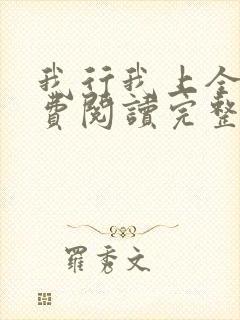 我行我上全
費閱讀完整
羅秀文